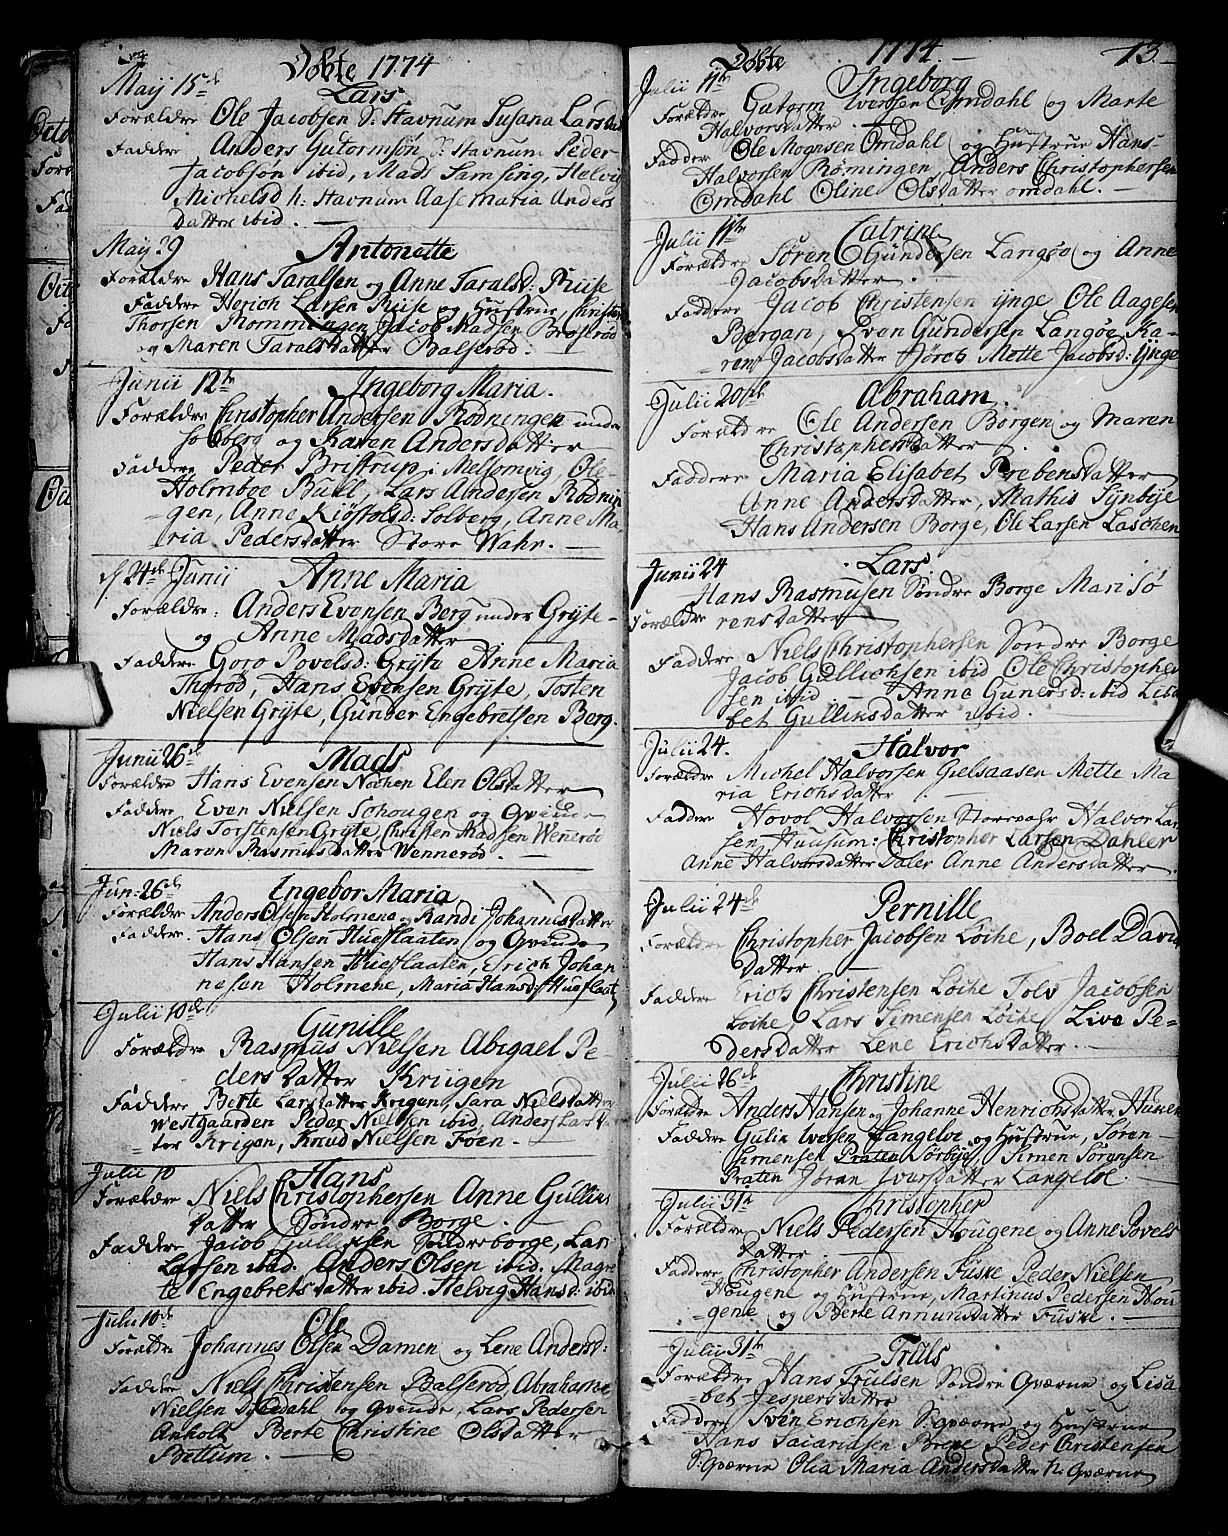 Döbte 1774
Maÿ 15de
Lars.
Forældre Ole Jacobsen S: Stavnum Susana Larsdat
Faddere Anders Gutormsön S: Stavnum Peder
Jacobsön ibid, Mads Semsing, Helvig
Michelsd N: Stavnum Aase Maria Anders
Datter ibid. —
May 29 Antonette
Forældre Hans Taralsen og Anne Taralsd: Riise
Faddere Herich Larsen Riise og Hustrue, Christen
Thorsen Rommingen Jacob Madsen Broserød
og Maren Taralsdatter Balserød.
Junii 12te Ingeborg Maria.
Forældre Christopher Andersen Rödningen under
Solberg og Karen Andersdatter
Faddere Peder Bristrup i Melsomvig, Ole
Holmboe Bull, Lars Andersen Rödnin
=gen, Anne Kiöstolsd: Solberg, Anne Ma
=ria Pedersdatter Store Wahr. —
d 24de Junii Anne Maria
Forældre: Anders Evensen Berg under Grÿte-
og Anne Madsdatter
Faddere Goro Povelsd: Grÿte Anne Maria
Thorød, Hans Evensen Grÿte, Tosten
Nielsen Grÿte, Gunder Engebretsen Berg.
Junii 26de Mads
Forældre Hans Evensen Nochen Elen Olsdatter
Faddere Even Nielsen Schougen og Qvinde
Niels Torstensen Grÿte Christen Madsen Wenerød
Maren Rasmusdatter Wennerød. —
Jun: 26de Ingebor Maria
Forældre Anders Olsen Holmene og Randi Johannesdatter
Faddere. Hans Olsen Hueflaaten og Qvinde
Hans Hansen Hueflaaten, Erich Johan
nesen Holmene, Maria Hansd: Hueflaat
Julii 10de
Gunille
Forældre Rasmus Nielsen Abigael Pe-
ders Datter Kriigen
Faddere Berte Larsdatter Krigen, Sara Nielsdatter
Westgaarden Peder Nielsen ibid, Anders Lars Da
=ter Krigen, Knud Nielsen Föen. —
Julii 10 Hans
Forældre Niels Christophersen Anne Gullics
datter Söndre Borge. —
Faddere Jacob Gullichsen Söndreborge, Lars
Larsen ibid. Anders Olsen ibid. Magre
te Engebretsdatter ibid. Helvig Hansd: ibid
Julii 10de Ole
Forældre Johannes Olsen Damen og Lene Andersd:
Faddere Niels Christensen Balserød, Abraham
Nielsen og Qvinde, Lars Pedersen
Anholt Berte Christine Olsdatter
Bettum. —
Döbte 1774. 73.
Julii 11te Ingeborg
Forældre Gutorm Iversen Omdahl og Marte
Halvorsdatter. —
Faddere Ole Mognsen Omdahl og Hustrue Hans
Halvorsen Römingen, Anders Christophersen
Omdahl Oline Olsdatter omdahl. —
Julii 11te Catrine
Forældre Sören Gundersen Langöe og Anne
Jacobsdatter
Faddere Jacob Christensen ÿnge Ole Aagesen
Bergan, Even Gundersen Langöe, Ka-
ren Jacobsdatter Mette Jacobsd: ÿnge
Julii 20de Abraham.
Forældre Ole Andersen Borgen og Maren
Christophersdatter
Faddere Maria Elisabet Prebensdatter
Anne Andersdatter, Mathis Sÿnbÿe
Hans Andersen Borge, Ole Larsen Laschen
Junii 24 Lars.
Hans Rasmusen Söndre Borge Mari Sö
Forældre rensdatter
Faddere Niels Christophersen Söndre Borge
Jacob Gullichsen ibid Ole Christopher
sen ibid — Anne Gunersd: ibid Lisa
bet Gulliksdatter ibid.
Julii 24. Halvor
Forældre Michel Halvorsen Gielsaasen Mette Ma
ria Erichsdatter
Faddere Hovol Halvorsen Storevahr Halvor Lar
sen Huusum: Christopher Larsen Dahler
Anne Halvorsdatter Daler Anne Andersdatter.
Julii 24de Pernille
Forældre Christopher Jacobsen Löche, Boel David
datter —
Faddere Erich Christensen Löche Tolv Jacobsen
Löche, Lars Simensen Löche, Live Pe=
dersdatter Lene Erichsdatter. —
Julii 26de Christine
Forældre Anders Hansen og Johanne Henrichsdatter Husen
Faddere Gulik Iversen Langelöe og Hustrue, Sören
Simensen Præten Sörbÿe, Simen Sörensen
Præten Jöran Iversdatter Langelöe. —
Julii 31te Christopher
Forældre Niels Pedersen Hougene og Anne Povels
datter
Faddere Christopher Andersen Fuske Peder Nielsen
Hougene og Hustrue, Martinus Pedersen Hou
=gene og Berte Annunsdatter Fuske. —
Julii 31te Truls
Forældre Hans Trulsen Söndre Qværne og Lisa
bet Jespersdatter
Faddere Svin Erichsen S: qværne og Hustrue
Hans Saiariasen Breke Peder Christensen
S: qværne Olia Maria Andersdatter N: Qværne